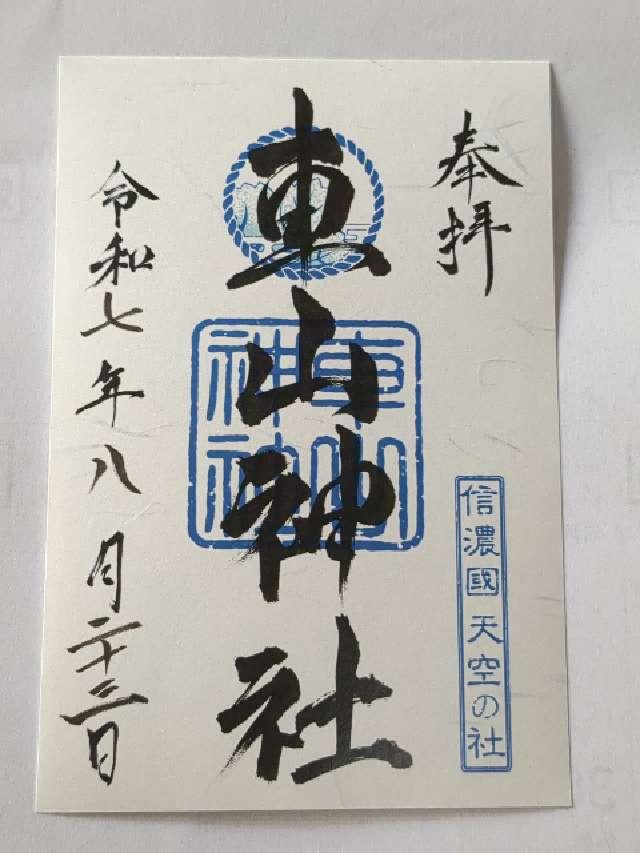 奉拝
信濃國 天空の社
車山神社
車山
神社
令和七年八月二十三日